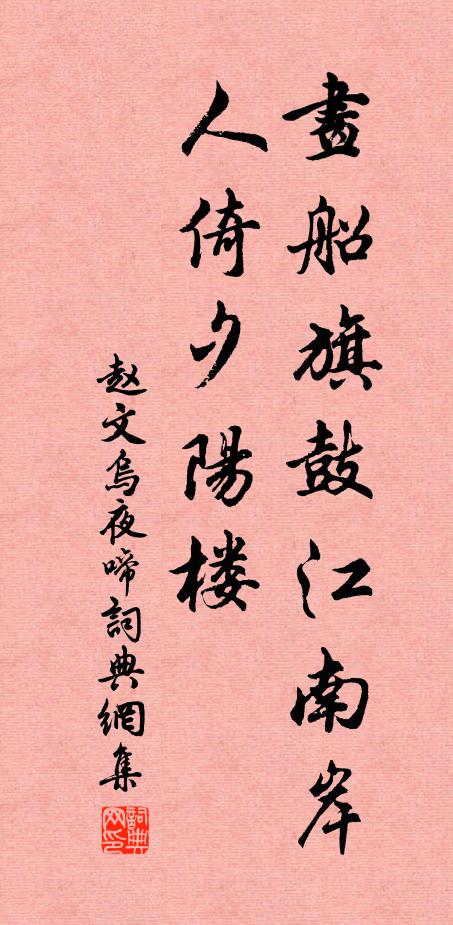 畫船旗鼓江南岸
人倚夕陽楼
赵文烏夜啼詞典網集
詞典
网印